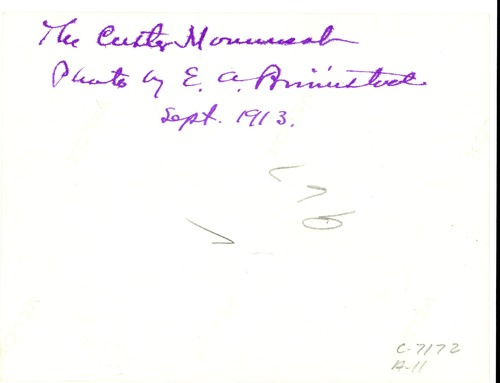 The Custer Monument
Photo by E. A. Brininstool
Sept. 1913.
C-7172
A-11